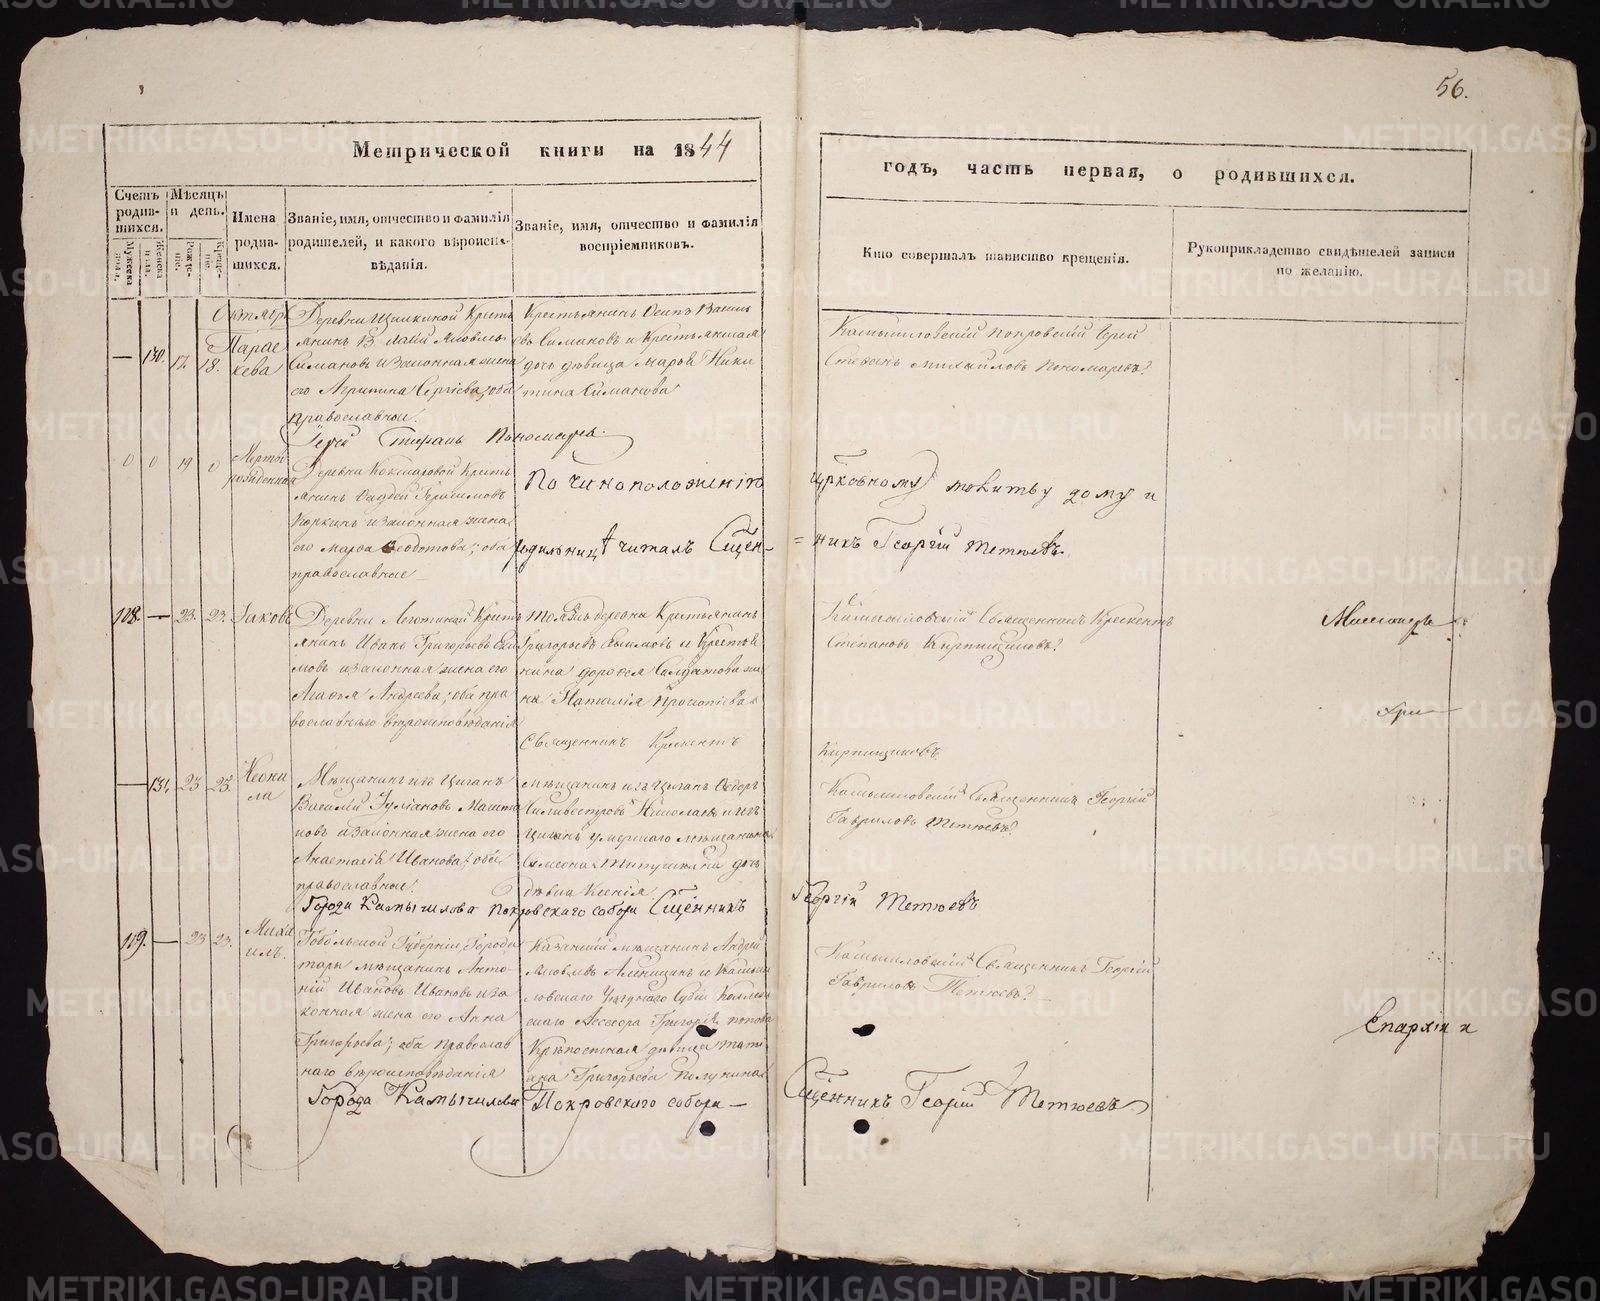 56.
Метрической книги на 1844
годъ, часть первая, о родившихся.
Счетъ родив-шихся.
Мужеска пола.
Женска пола.
Мѣсяцъ и день.
Рожде-нія.
Креще-нія.
Имена родив-шихся.
Званіе, имя, отчество и фамилія родителей, и какого вѣроиспо-вѣданія.
Званіе, имя, отчество и фамилія воспріемниковъ.
Кто совершалъ таинство крещенія.
Рукоприкладство свидѣтелей записи по желанію.
Октябрь
— 130. 17. 18.
Параскева
Деревни Кресть
янинъ Яковлевъ
Симановъ и законная жена
его Агрипина Сергіева, оба
православные.
Крестьянинъ Осипъ Василь
евъ Симановъ и крестьянская
дочь дѣвица Марфа Ники
тина Симанова
Камышловскій Покровскій Іерей
Стефанъ Михайловъ Пономаревъ.
Іерей Стефанъ Пономаревъ.
0 0 19 0
Мертво
рожденная
Деревни Кокшаровой Кресть
янинъ Фаддей Герасимовъ
Коркинъ и законная жена
его Марфа Феодотова; оба
православные
По чиноположенію
церковному молитву дому и
родильницѣ читалъ Сщен-
никъ Георгій Тетюевъ.
118. — 23. 23.
Іаковъ
Деревни Кресть
янинъ Иванъ Григорьевъ
мовъ и законная жена его
Агафья Андреева; оба пра
вославнаго вѣроисповѣданія
Той же деревни Крестьянинъ
Григорьевъ и Крестья
нина Дорофея Солдатова же
на Наталія Прокопіева
Камышловскій Священникъ Крискентъ
Степановъ Кирпищиковъ.
Священникъ Крискентъ
Кирпищиковъ.
— 131. 23 23.
Неони
ла
Мѣщанинъ изъ Цыганъ
Василій Іуліановъ
новъ и законная жена его
Анастасія Иванова; оба
православные.
Мѣщанинъ изъ Цыганъ Федоръ
Силивестровъ Николаевъ и изъ
Цыганъ умершаго мѣщанина
Симеона дочь
дѣвица Ксенія
Камышловскій Священникъ Георгій
Гавриловъ Тетюевъ.
Города Камышлова Покровскаго собора Сщенникъ
Георгій Тетюевъ
119. — 23 23.
Миха
илъ.
Тобольской Губерніи, Города
Тары мѣщанинъ Анто
ній Ивановъ Ивановъ и за
конная жена его Анна
Григорьева; оба православ
наго вѣроисповѣданія
Казанскій мѣщанинъ Андрей
Яковлевъ и Камыш
ловскаго Уѣзднаго Судіи Коллеж
скаго Ассесора Григорія Попова
Крѣпостная дѣвица Тать
яна Григорьева
Камышловскій Священникъ Георгій
Гавриловъ Тетюевъ.
Епархіи
Города Камышлова Покровскаго собора —
Сщенникъ Георгій Тетюевъ
METRIKI.GASO-URAL.RU